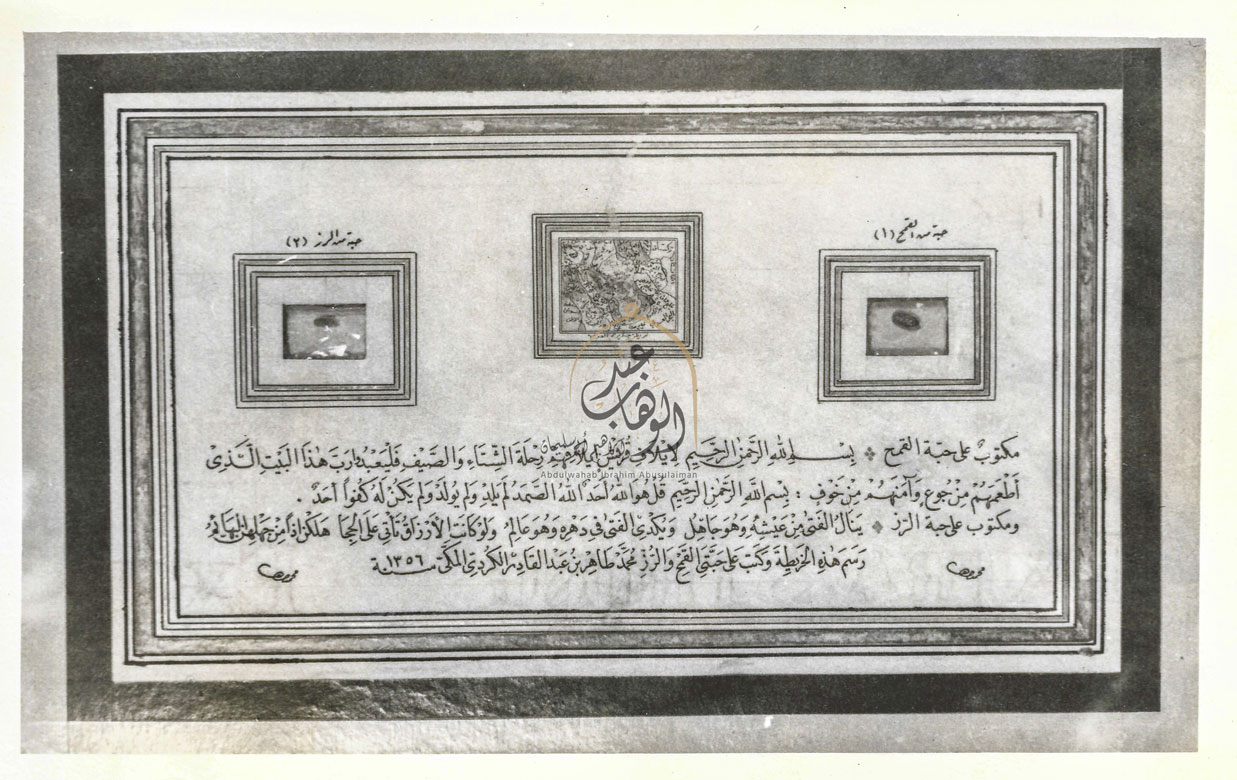 حبة من القمح (١)
حبة من الرز (٢)
عبد الوهاب
إبراهيم أبو سليمان
Abdulwahab Ibrahim Abusulaiman
مكتوبٌ على حبة القمح * بِسْمِ اللهِ الرَّحْمٰنِ الرَّحِيْمِ لإيلافِ قريش إيلافهم رِحْلَةَ الشِّتَاءِ وَالصَّيْفِ فَلْيَعْبُدُوا رَبَّ هٰذَا البَيْتِ الَّذِىْ
أَطْعَمَهُمْ مِنْ جُوعٍ وَآمَنَهُمْ مِنْ خَوْفٍ : بِسْمِ اللهِ الرَّحْمٰنِ الرَّحِيْمِ قُلْ هُوَ اللهُ أَحَدٌ اللهُ الصَّمَدُ لَمْ يَلِدْ وَلَمْ يُولَدْ وَلَمْ يَكُنْ لَهُ كُفُوًا أَحَدٌ .
ومكتوب على حبة الرّز * يَنَالُ الفَتَى مِنْ عَيْشِهِ وَهُوَ جَاهِل وَيُكْدِى الفَتَى فِى دَهْرِهِ وَهُوَ عَالِمُ وَلَوْ كَانَتِ الأَرْزَاقُ تَأْتِى عَلَى الحِجَا هَلَكْنَ إِذًا مِنْ جَهْلِهِنَّ البَهَائِمُ
رَسَمَ هٰذِهِ الخَرِيْطَةَ وَكَتَبَ عَلَى حَبَّتَىِ القَمْحِ وَالرُّزِّ مُحَمَّد طَاهِر بْنُ عَبْدِ القَادِرِ الكُرْدِىّ المَكِّىّ سنة ١٣٥٦